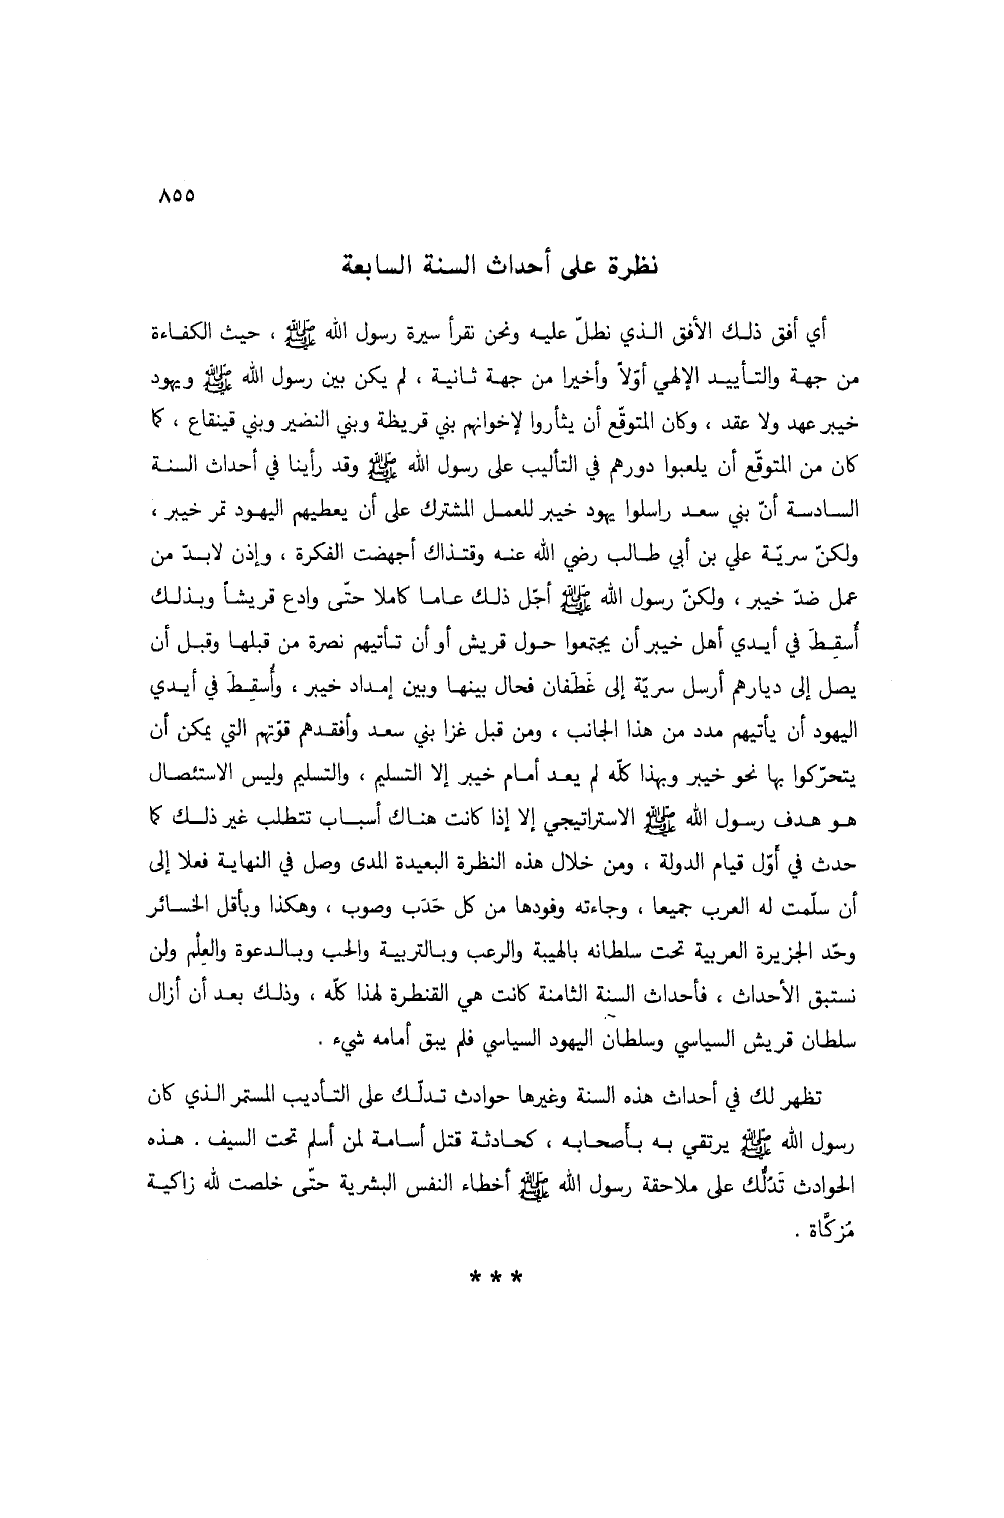 ٨٥٥
نظرة على أحداث السنة السابعة
أي أفق ذلك الأفق الذي نطلّ عليه ونحن نقرأ سيرة رسول الله ﷺ ، حيث الكفاءة
من جهة والتأييد الإلهي أوّلاً وأخيرا من جهة ثانية ، لم يكن بين رسول الله ﷺ ويهود
خيبر عهد ولا عقد ، وكان المتوقّع أن يثأروا لإخوانهم بني قريظة وبني النضير وبني قينقاع ، كما
كان من المتوقّع أن يلعبوا دورهم في التأليب على رسول الله ﷺ وقد رأينا في أحداث السنة
السادسة أنّ بني سعد راسلوا يهود خيبر للعمل المشترك على أن يعطيهم اليهود تمر خيبر ،
ولكنّ سريّة علي بن أبي طالب رضي الله عنه وقتذاك أجهضت الفكرة ، وإذن لابدّ من
عمل ضدّ خيبر ، ولكنّ رسول الله ﷺ أجّل ذلك عاما كاملا حتّى وادع قريشاً وبذلك
أُسقِطَ في أيدي أهل خيبر أن يجتمعوا حول قريش أو أن تأتيهم نصرة من قبلها وقبل أن
يصل إلى ديارهم أرسل سريّة إلى غَطَفان فحال بينها وبين إمداد خيبر ، وأُسقِطَ في أيدي
اليهود أن يأتيهم مدد من هذا الجانب ، ومن قبل غزا بني سعد وأفقدهم قوّتهم التي يمكن أن
يتحرّكوا بها نحو خيبر وبهذا كلّه لم يعد أمام خيبر إلا التسليم ، والتسليم وليس الاستئصال
هو هدف رسول الله ﷺ الاستراتيجي إلا إذا كانت هناك أسباب تتطلب غير ذلك كما
حدث في أَوّل قيام الدولة ، ومن خلال هذه النظرة البعيدة المدى وصل في النهاية فعلا إلى
أن سلّمت له العرب جميعا ، وجاءته وفودها من كل حَدَب وصوب ، وهكذا وبأقل الخسائر
وحّد الجزيرة العربية تحت سلطانه بالهيبة والرعب وبالتربية والحب وبالدعوة والعِلْم ولن
نستبق الأحداث ، فأحداث السنة الثامنة كانت هي القنطرة لهذا كلّه ، وذلك بعد أن أزال
سلطان قريش السياسي وسلطان اليهود السياسي فلم يبق أمامه شيء .
تظهر لك في أحداث هذه السنة وغيرها حوادث تدلّك على التأديب المستمر الذي كان
رسول الله ﷺ يرتقي به بأصحابه ، كحادثة قتل أسامة لمن أسلم تحت السيف . هذه
الحوادث تَدُلُّك على ملاحقة رسول الله ﷺ أخطاء النفس البشرية حتّى خلصت لله زاكية
مُزكَّاة .
* * *